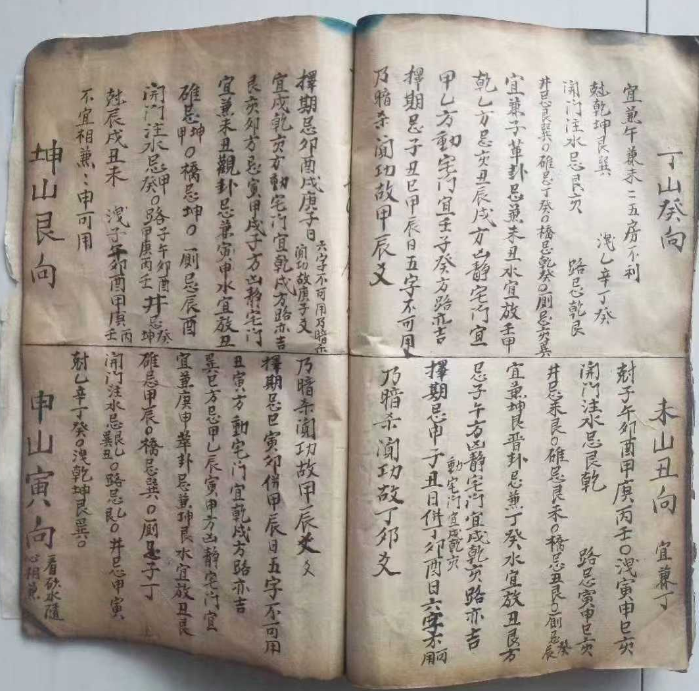 丁山癸向
宜兼午兼未二五房不利
尅乾坤艮巽 洩乙辛丁癸
開門注水忌艮亥 路忌乾艮
井忌艮巽〇碓忌丁癸〇橋忌乾癸〇厠忌亥巽
宜兼子革卦忌兼未丑水宜放壬甲
乾乙方忌亥丑辰戌方凶靜宅門宜
甲乙方動宅門宜壬子癸方路亦吉
擇期忌子丑巳甲辰日五字不可用
乃暗杀閗功故甲辰爻
未山丑向 宜兼丁
尅子午卯酉甲庚丙壬〇洩寅申巳亥
開門注水忌艮乾 路忌寅申巳亥
井忌未艮〇碓忌艮未〇橋忌丑艮〇厠忌辰癸
宜兼坤艮晋卦忌兼丁癸水宜放丑艮方
忌子午方凶靜宅門宜戌乾亥路亦吉
動宅門宜戌乾亥
擇期忌申子丑日併丁卯酉日六字不可用
乃暗杀閗功故丁卯爻
擇期忌卯酉戌庚子日六字不可用乃暗杀閗功故庚子爻
宜戌乾亥方動宅門宜乾戌方路亦吉
艮亥卯方忌寅甲戌子方凶靜宅門
宜兼未丑觀卦忌兼寅申水宜放丑
碓忌坤甲〇橋忌坤〇厠忌辰酉
開門注水忌癸甲〇路子午卯酉癸甲庚丙壬井忌坤
尅辰戌丑未 洩子午卯酉甲庚丙壬
不宜相兼:申可用
坤山艮向
乃暗杀閗功故甲辰爻
擇期忌巳寅卯併甲辰日五字不可用
丑寅方動宅門宜乾戌方路亦吉
巽巳方忌甲乙辰寅申方凶靜宅門宜
宜兼庚甲萃卦忌兼坤艮水宜放丑艮
碓忌甲辰〇橋忌巽〇厠忌子丁
開門注水忌艮乙巽丑〇路忌艮〇井忌甲寅
尅乙辛丁癸〇洩乾坤艮巽〇
申山寅向